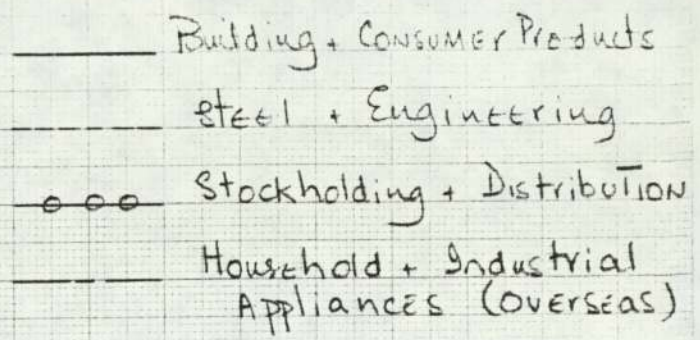 Building + Consumer Products
Steel + Engineering
Stockholding + Distribution
Household + Industrial
Appliances (Overseas)